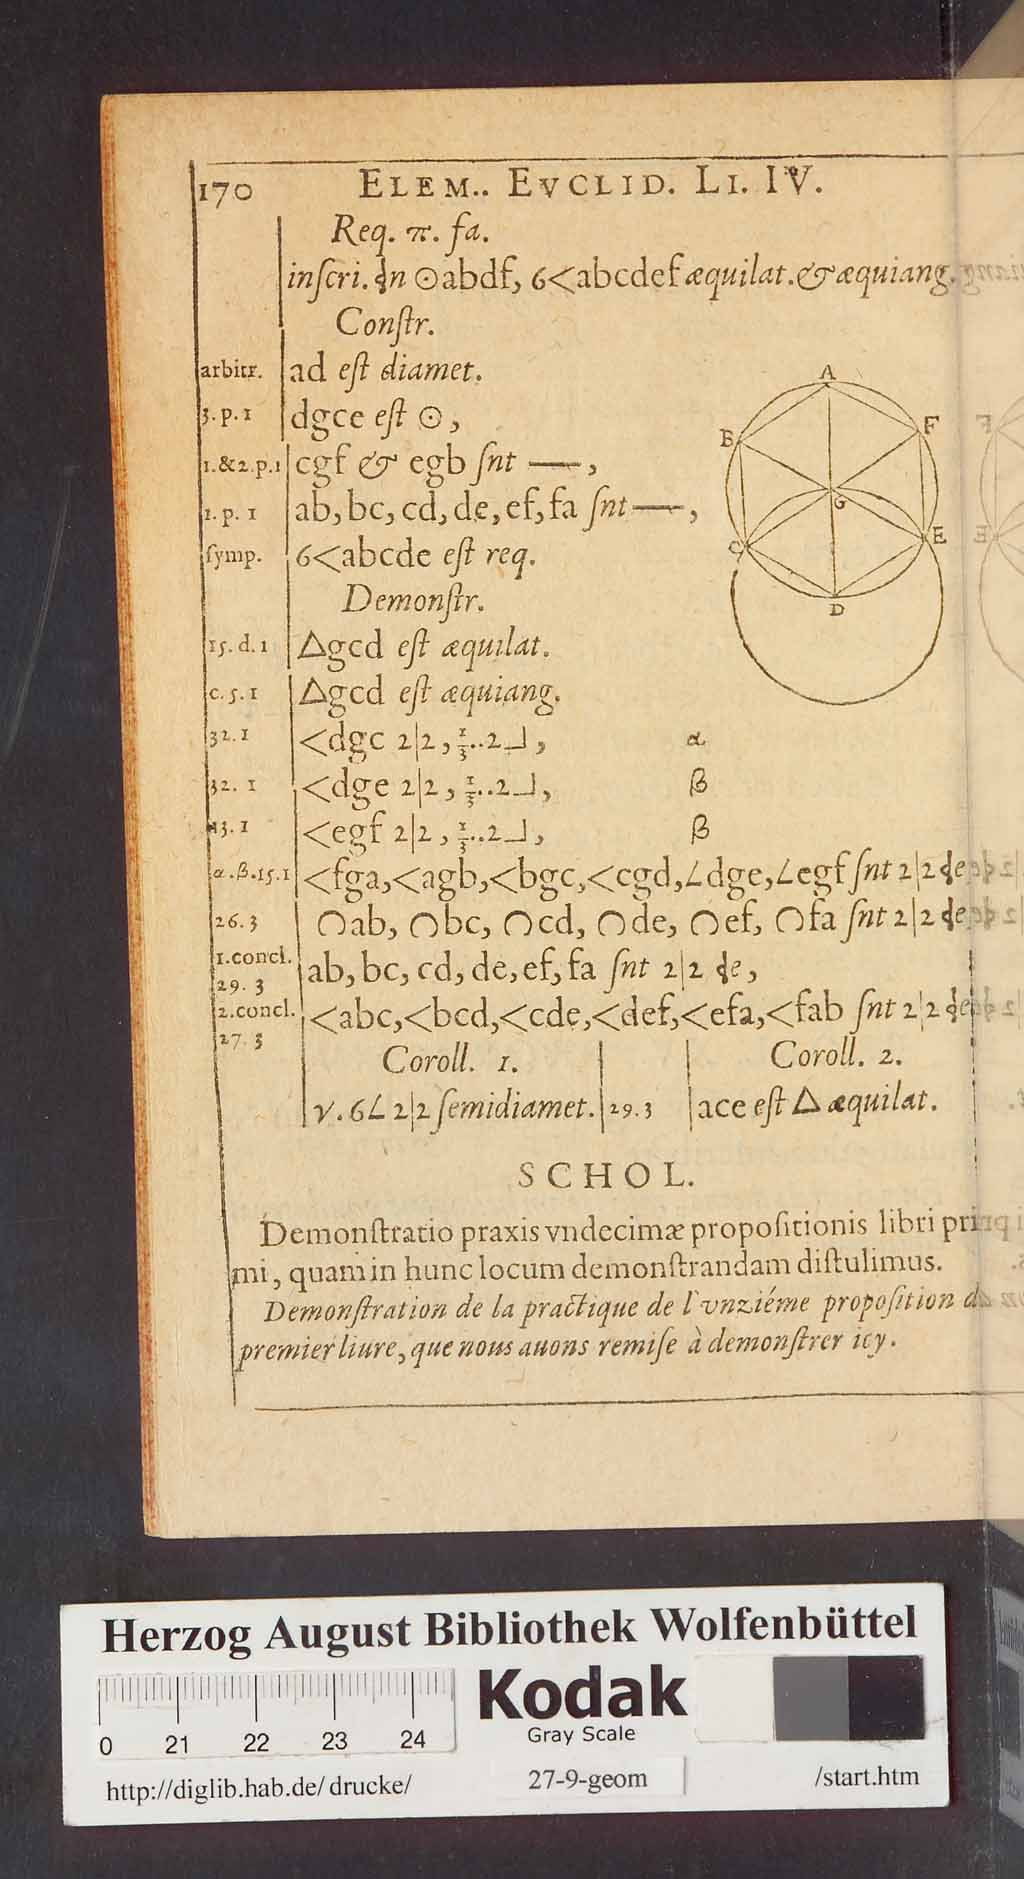 170 ELEM.. EVCLID. LI. IV.
Req. π. fa.
inſcri. ɖn ⊙abdf, 6<abcdef æquilat. & æquiang.
Conſtr.
arbitr. ad eſt diamet.
3. p. 1 dgce eſt ⊙,
1.&2.p.1 cgf & egb ſnt —,
1. p. 1 ab, bc, cd, de, ef, fa ſnt —,
ſymp. 6<abcde eſt req.
Demonſtr.
15. d. 1 △gcd eſt æquilat.
c. 5. 1 △gcd eſt æquiang.
32. 1 <dgc 2|2, ⅓..2⅃, α
32. 1 <dge 2|2, ⅓..2⅃, β
13. 1 <egf 2|2, ⅓..2⅃, β
α.β.15.1 <fga, <agb, <bgc, <cgd, ∠dge, ∠egf ſnt 2|2 ɖe
26. 3 ∩ab, ∩bc, ∩cd, ∩de, ∩ef, ∩fa ſnt 2|2 ɖe
1. concl.
29. 3 ab, bc, cd, de, ef, fa ſnt 2|2 ɖe,
2. concl.
27. 3 <abc, <bcd, <cde, <def, <efa, <fab ſnt 2|2 ɖe
Coroll. 1. Coroll. 2.
ν. 6∠ 2|2 ſemidiamet. 29. 3 ace eſt △ æquilat.
A
B
F
G
C
E
D
SCHOL.
Demonſtratio praxis vndecimæ propoſitionis libri pri
mi, quam in hunc locum demonſtrandam diſtulimus.
Demonſtration de la practique de l'vnziéme propoſition d
premier liure, que nous auons remiſe à demonſtrer icy.
Herzog August Bibliothek Wolfenbüttel
Kodak
Gray Scale
0 21 22 23 24
http://diglib.hab.de/drucke/ 27-9-geom /start.htm